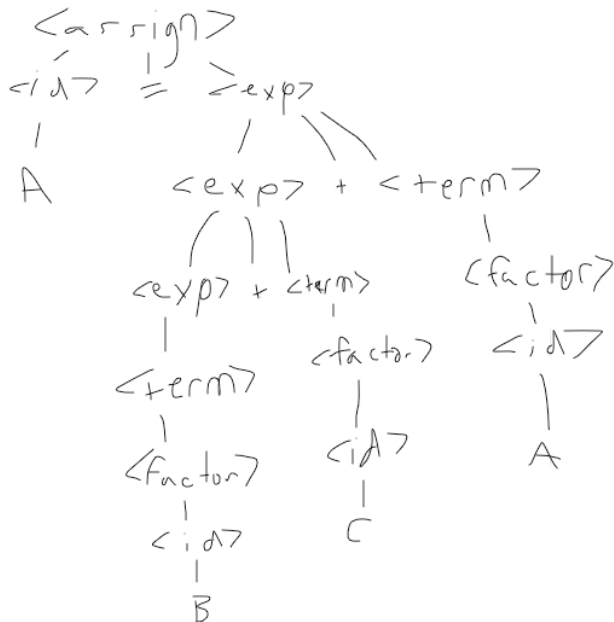 <assign>
<id> = <exp>
A <exp> + <term>
<exp> + <term> <factor>
<term> <factor> <id>
<factor> <id> A
<id> C
B